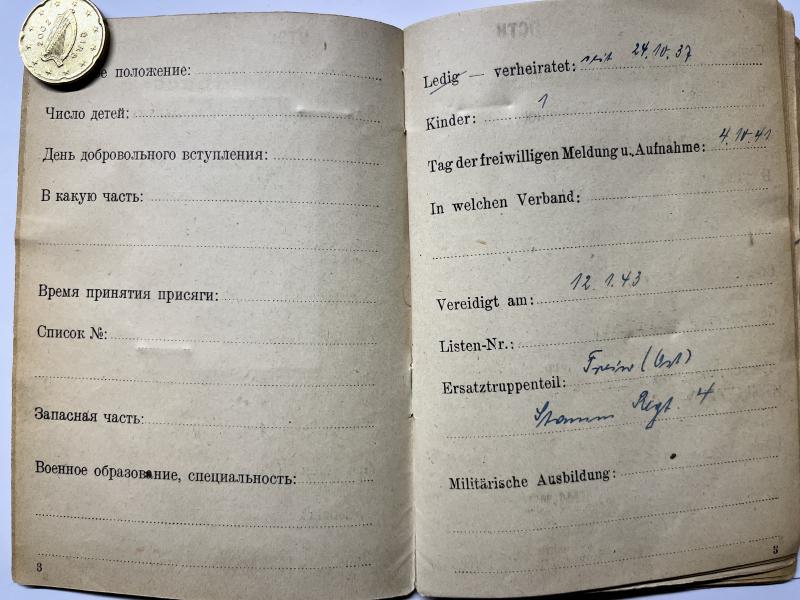 2002
е положение:
Число детей:
День добровольного вступления:
В какую часть:
Время принятия присяги:
Список №:
Запасная часть:
Военное образование, специальность:
3
Ledig — verheiratet: seit 24.10.37
Kinder: 1
Tag der freiwilligen Meldung u. Aufnahme: 4.10.41
In welchen Verband:
Vereidigt am: 12.1.43
Listen-Nr.:
Ersatztruppenteil: Freiw (Ost)
Stamm Regt. 4
Militärische Ausbildung:
3